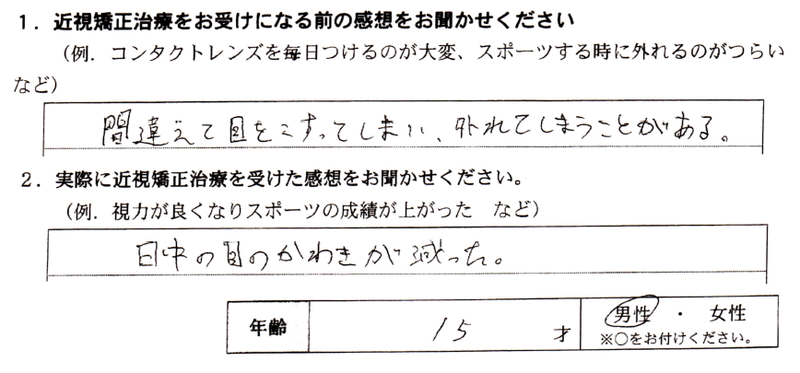 1．近視矯正治療をお受けになる前の感想をお聞かせください
（例．コンタクトレンズを毎日つけるのが大変、スポーツする時に外れるのがつらい
など）
間違えて目をこすってしまい、外れてしまうことがある。
2．実際に近視矯正治療を受けた感想をお聞かせください。
（例．視力が良くなりスポーツの成績が上がった　など）
日中の目のかわきが減った。
年齢 15 才 男性 ・ 女性
※○をお付けください。